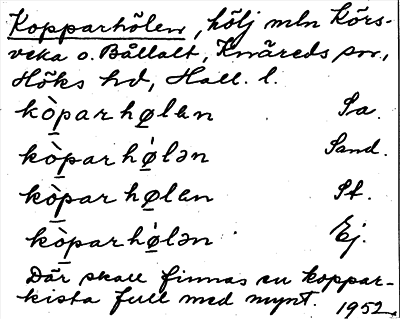 Kopparhölen, hölj mln Körs-
veka o. Bållalt, Knäreds sn,
Höks hd, Hall. l.
kòparhølan Sa.
kòparhǿlən Sand.
kòparhølan St.
kòparhǿlən Ej.
Där skall finnas en koppar-
kista full med mynt. 1952.